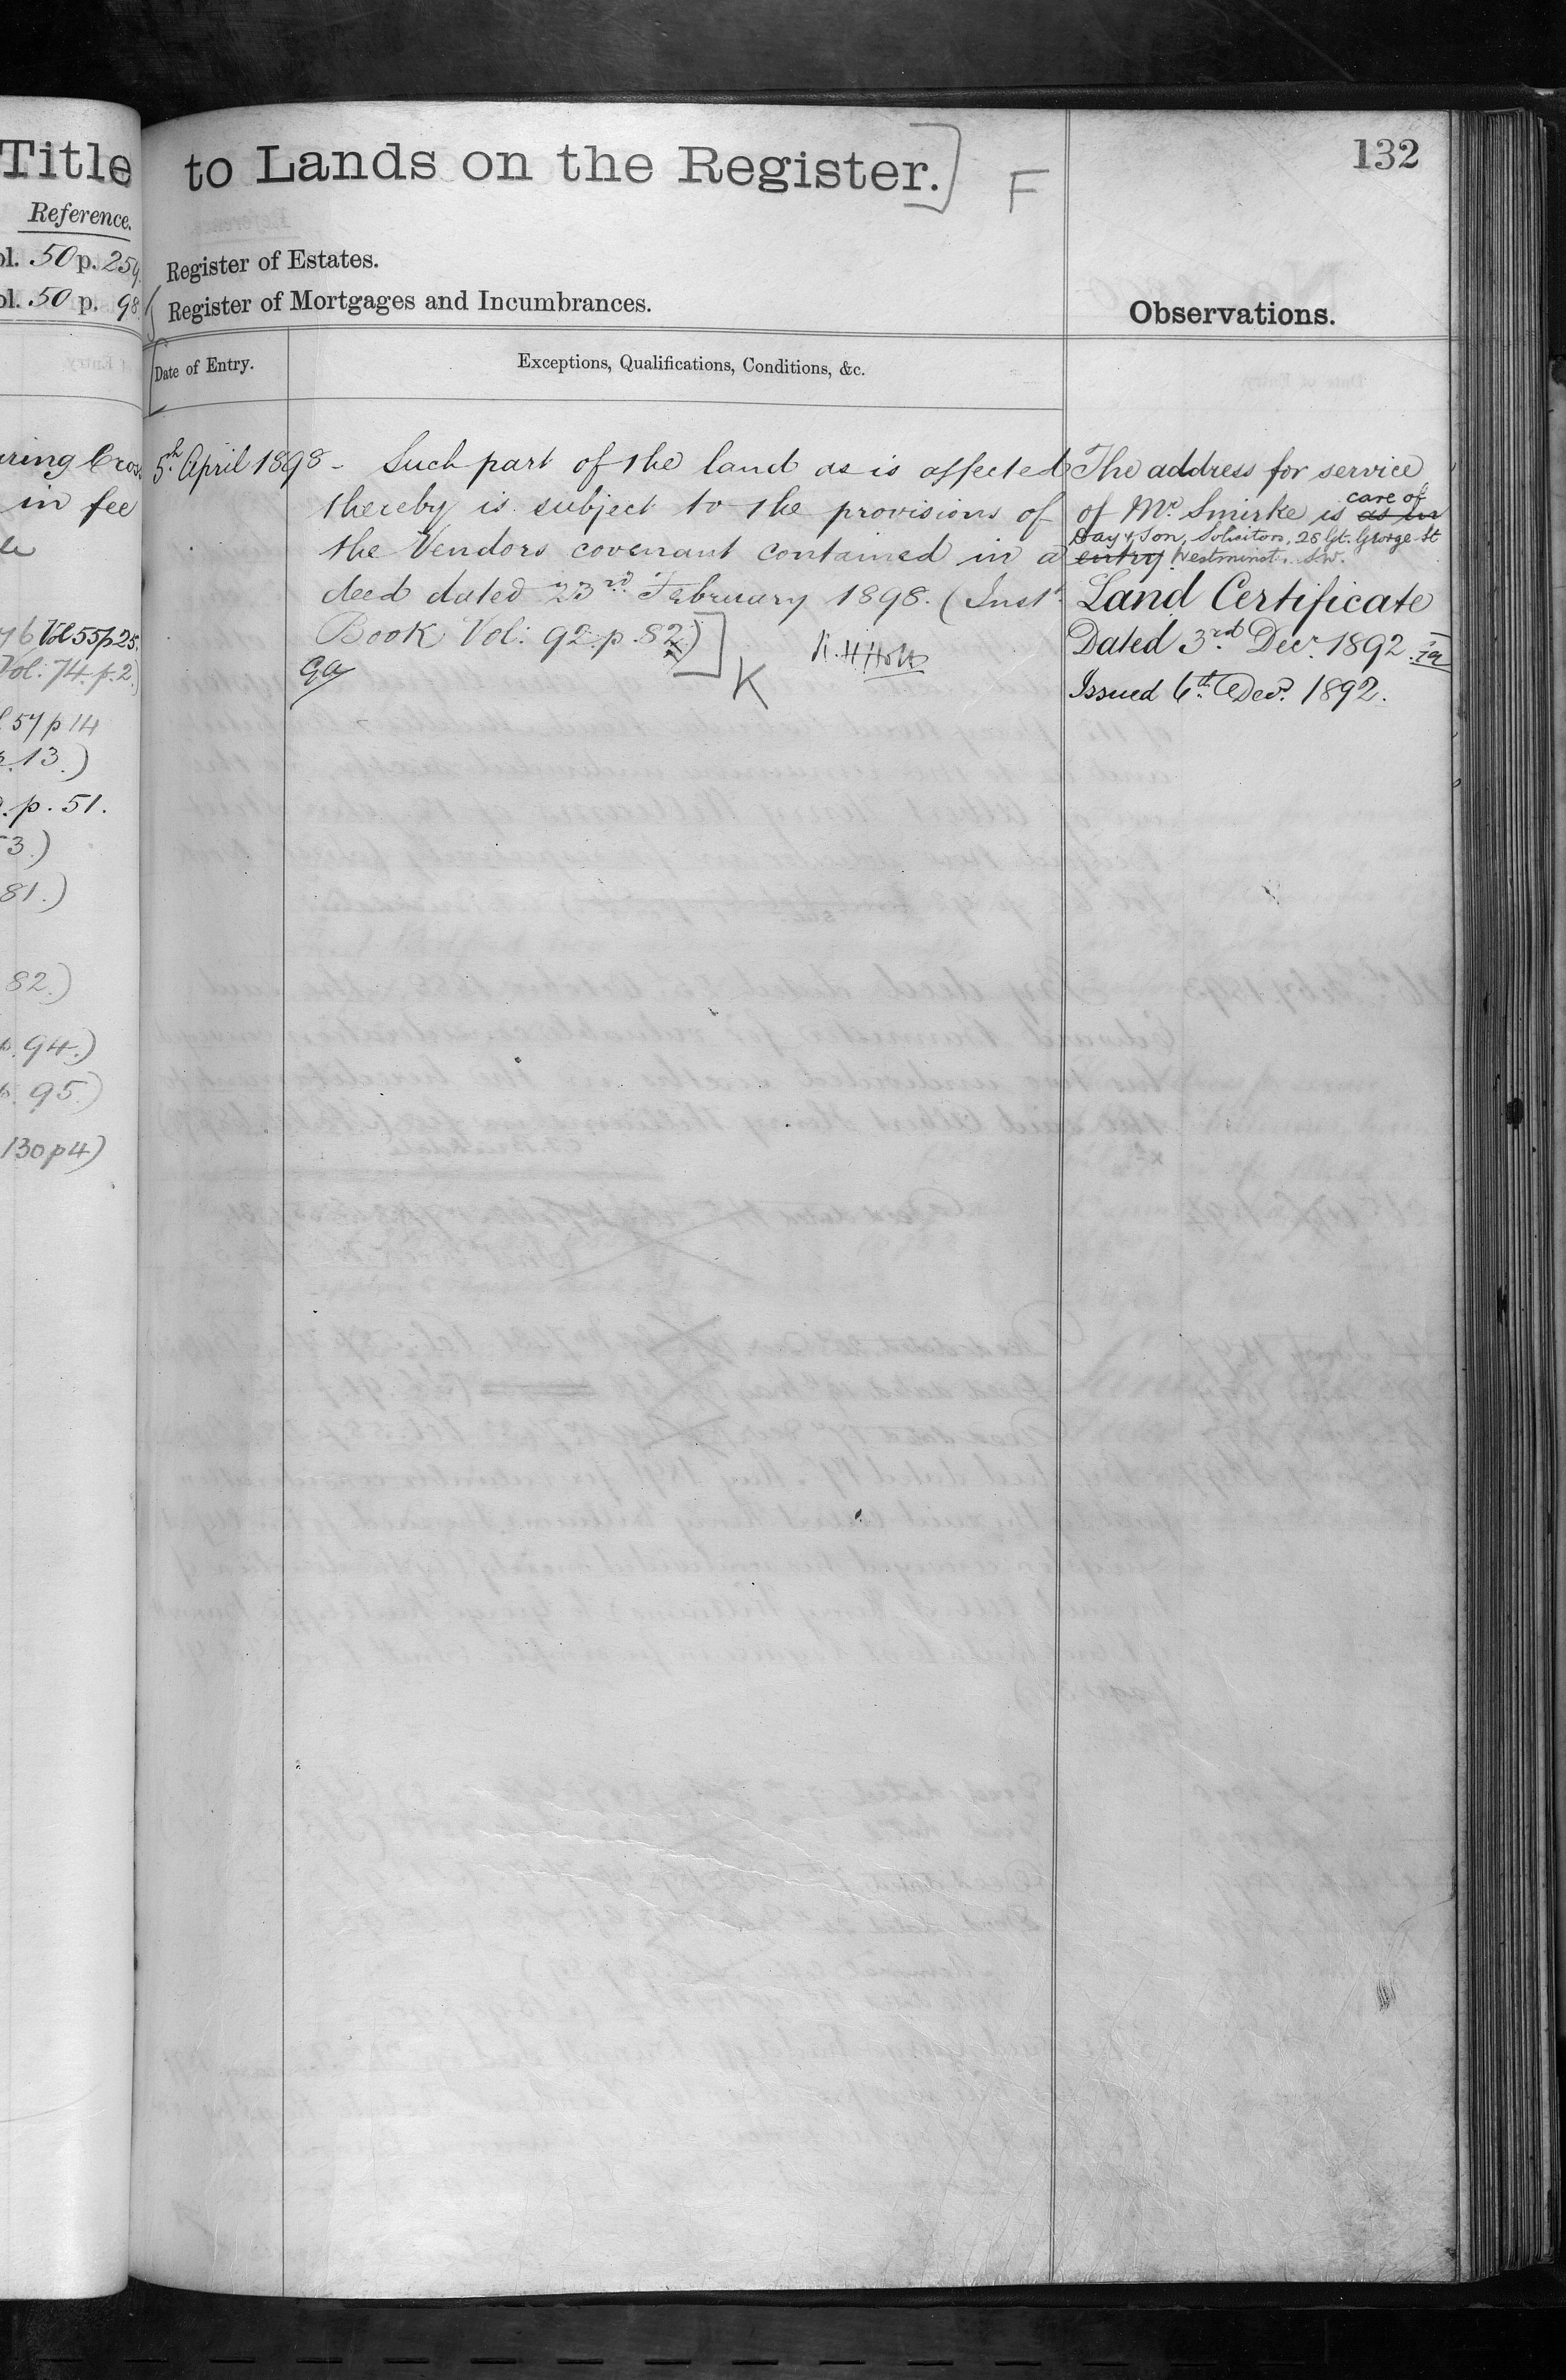 Title
Reference.
ol. 50 p. 259
ol. 50 p. 98
ring Cross
in fee
Vol 55 p 25.
Vol: 74. p. 2.)
57 p 14
p. 13.)
p. 51.
3.)
81.)
82.)
p. 94.)
p. 95.)
130 p 4)
to Lands on the Register.] F
132
Register of Estates.
Register of Mortgages and Incumbrances.
Observations.
Date of Entry.
Exceptions, Qualifications, Conditions, &c.
5th April 1898 - Such part of the land as is affected
thereby is subject to the provisions of
the Vendors covenant contained in a
deed dated 23rd February 1898. (Inst.
Book Vol: 92. p. 82)]
K
The address for service
of Mr. Smirke is as in care of
Day & Son, Solicitors, 28 Gt. George St
entry Westminst. S.W.
Land Certificate
Dated 3rd Decr. 1892.
Issued 6th Decr. 1892.